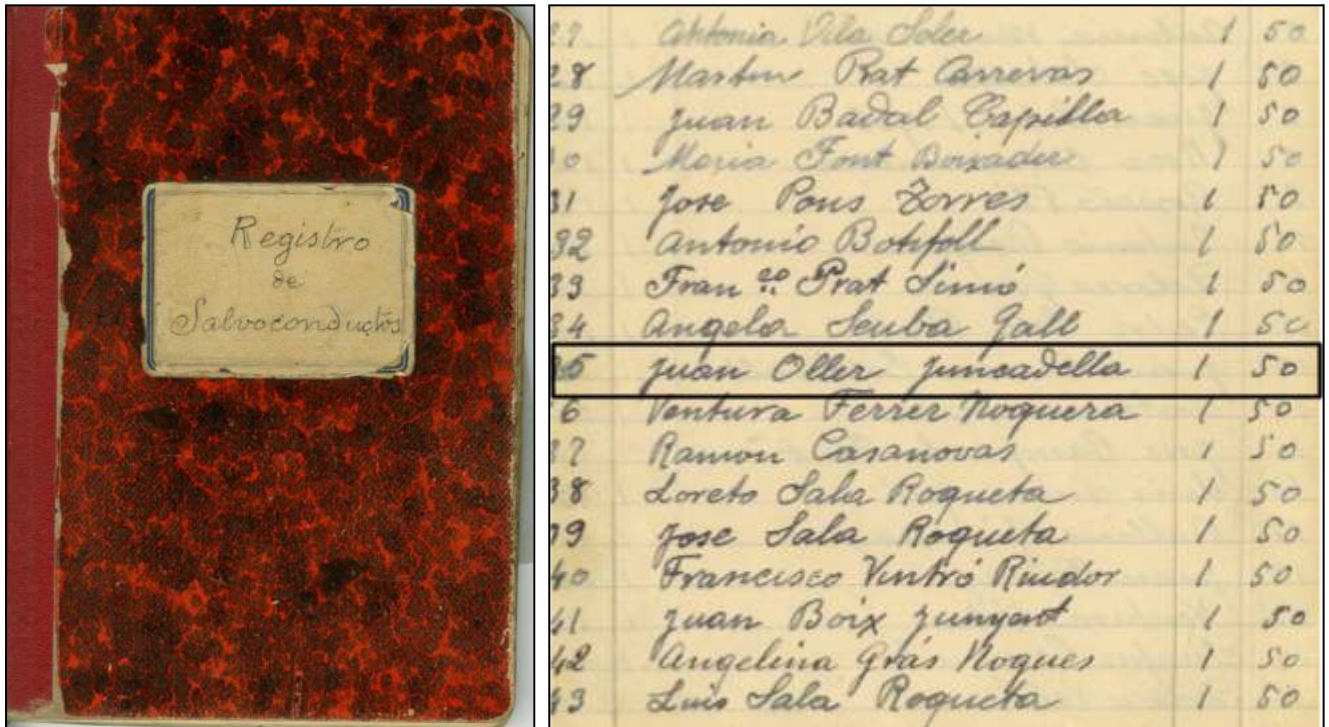 Registro
de
Salvoconductos
27 Antonia Vila Soler 1 50
28 Martin Prat Carreras 1 50
29 Juan Badal Capilla 1 50
0 Maria Font Boixader 1 50
31 Jose Pons Torres 1 50
32 Antonio Botifoll 1 50
33 Fran.co Prat Simó 1 50
34 Angela Seuba Gall 1 50
35 Juan Oller Juncadella 1 50
6 Ventura Ferrer Noguera 1 50
37 Ramon Casanovas 1 50
38 Loreto Sala Roqueta 1 50
39 Jose Sala Roqueta 1 50
40 Francisco Vintró Riudor 1 50
41 Juan Boix Junyent 1 50
42 Angelina Grás Nogues 1 50
43 Luis Sala Roqueta 1 50